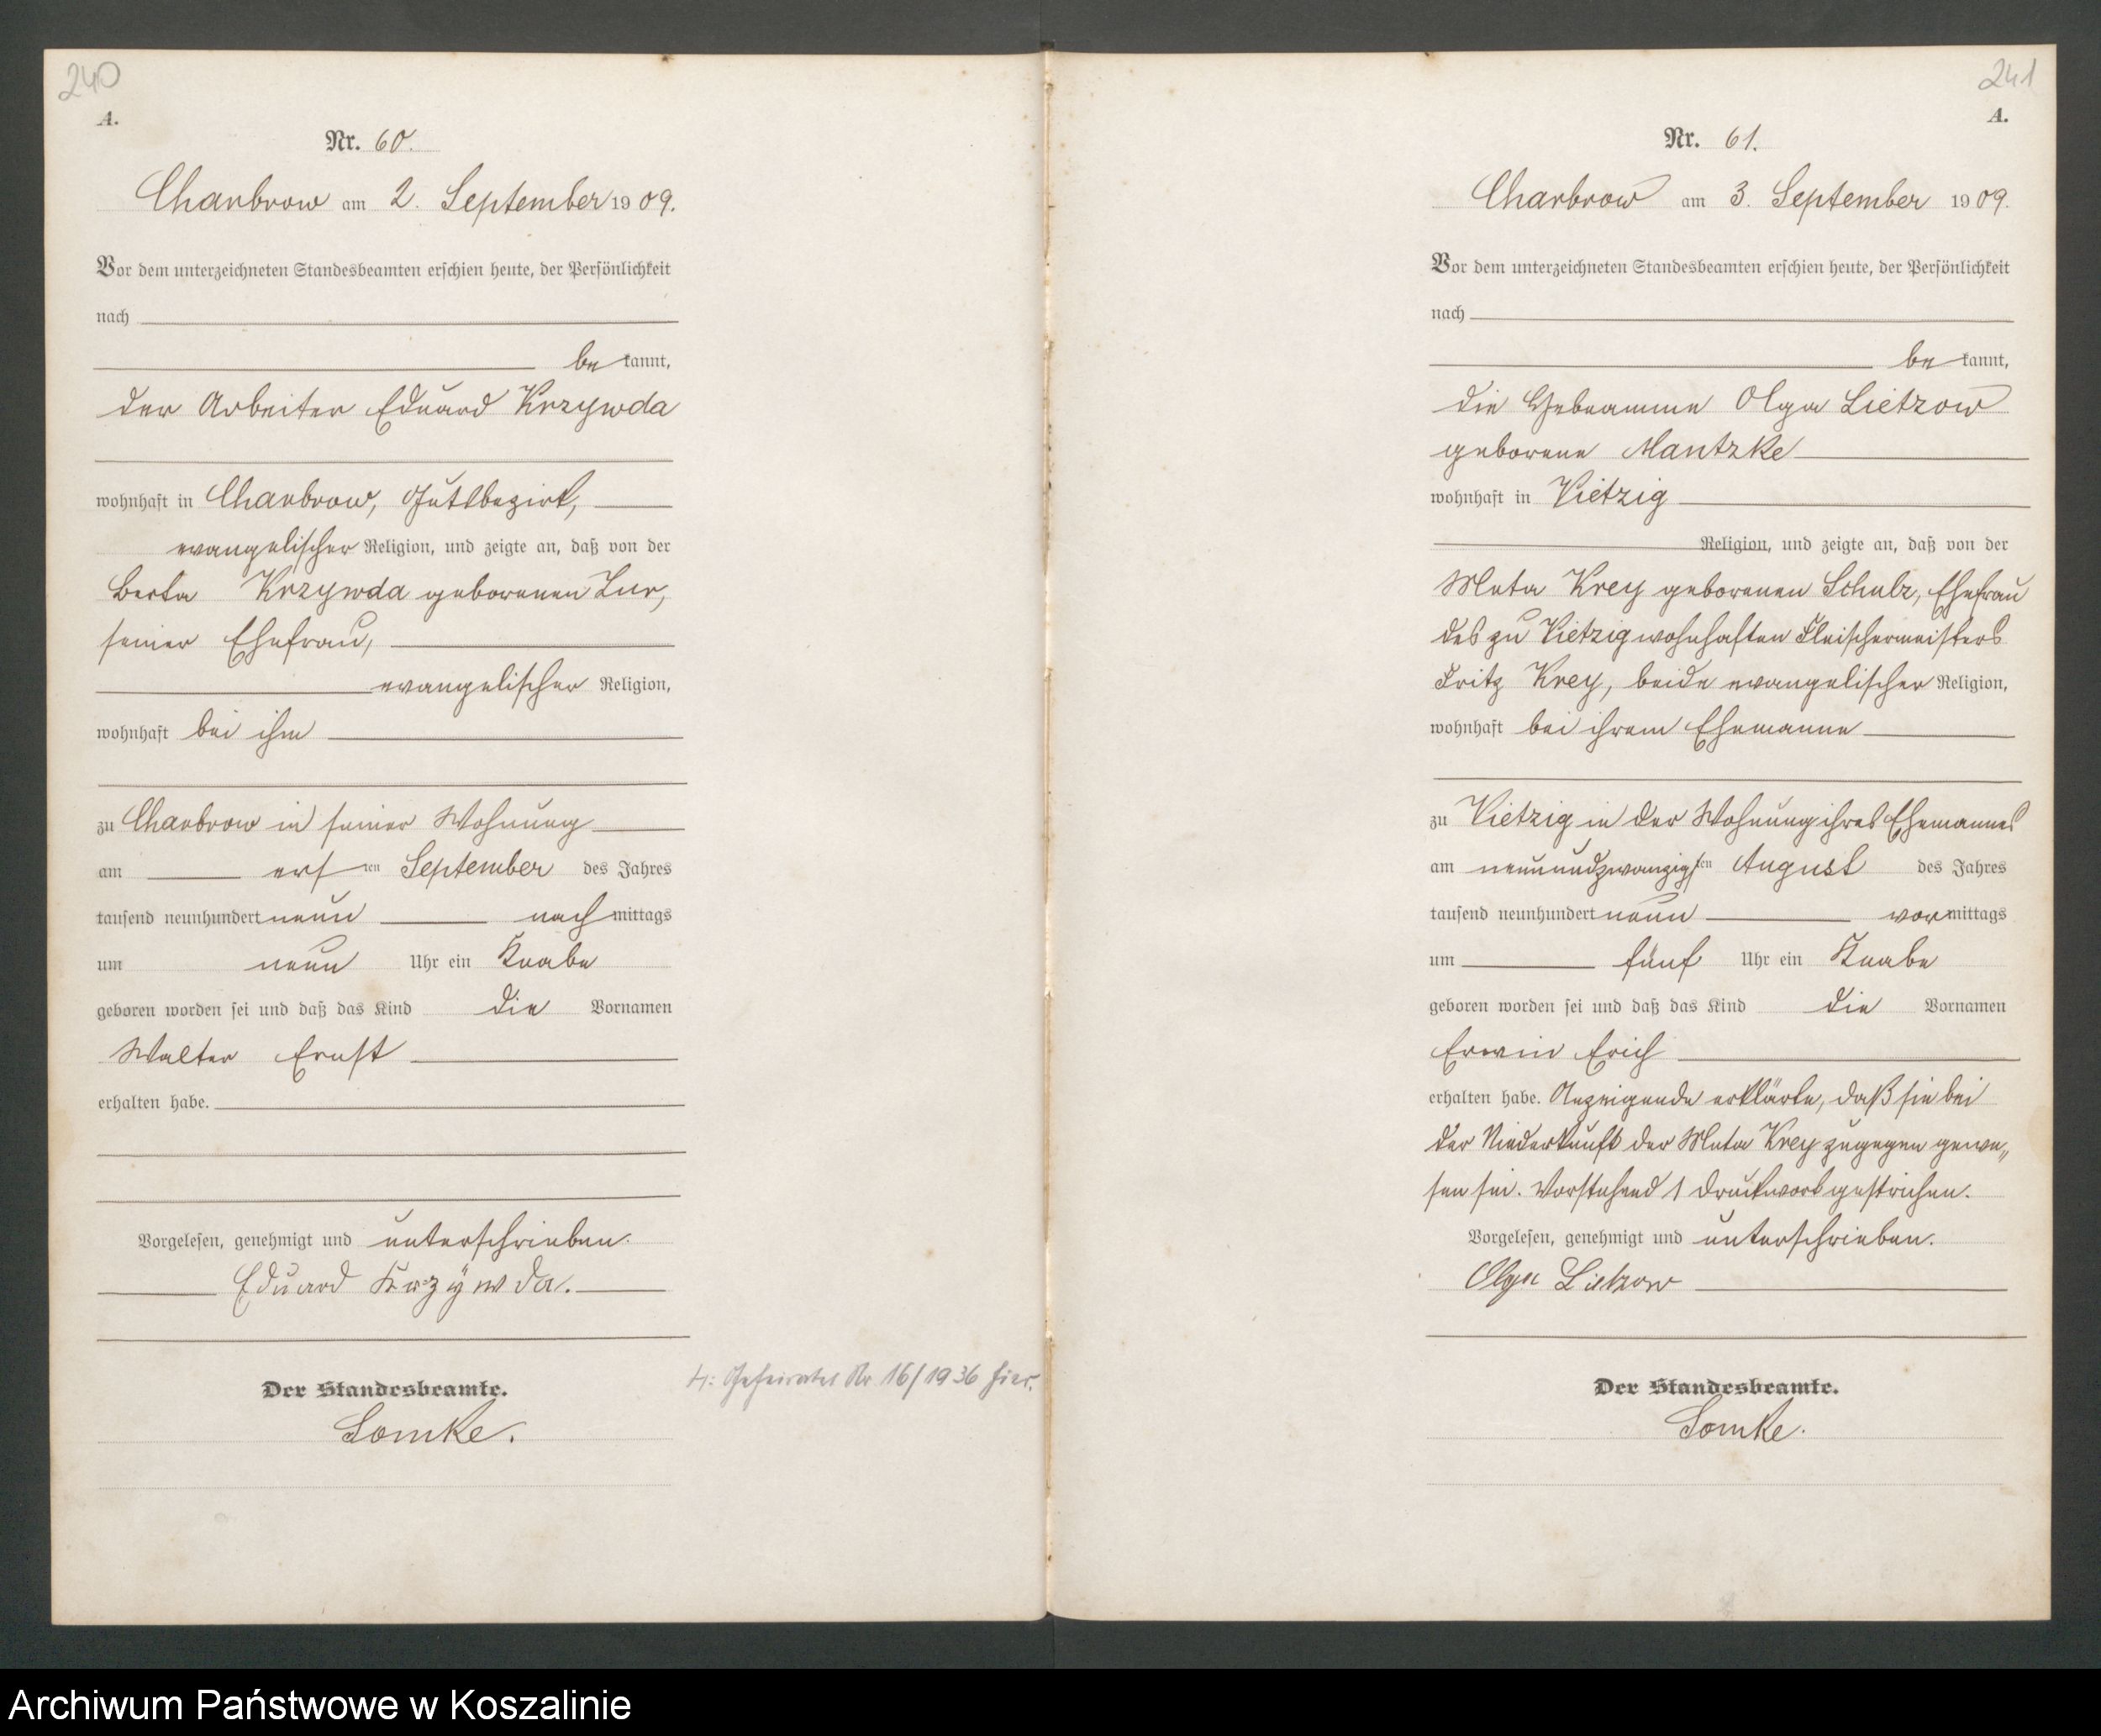 240
A.
Nr. 60.
Charbrow am 2. September 1909.
Vor dem unterzeichneten Standesbeamten erschien heute, der Persönlichkeit
nach
be kannt,
der Arbeiter Eduard Krzywda
wohnhaft in Charbrow, Gutsbezirk,
evangelischer Religion, und zeigte an, daß von der
Berta Krzywda geborenen Lur,
seiner Ehefrau,
evangelischer Religion,
wohnhaft bei ihm
zu Charbrow in seiner Wohnung
am ersten September des Jahres
tausend neunhundert neun nachmittags
um neun Uhr ein Knabe
geboren worden sei und daß das Kind die Vornamen
Walter Ernst
erhalten habe.
Vorgelesen, genehmigt und unterschrieben.
Eduard Krzÿwda.
Der Standesbeamte.
Lomke.
H: Geheiratet Nr 16/1936 hier.
241
A.
Nr. 61.
Charbrow am 3. September 1909.
Vor dem unterzeichneten Standesbeamten erschien heute, der Persönlichkeit
nach
be kannt,
die Hebeamme Olga Lietzow
geborene Mantzke
wohnhaft in Vietzig
Religion, und zeigte an, daß von der
Meta Krey geborenen Schulz, Ehefrau
des zu Vietzig wohnhaften Fleischermeisters
Fritz Krey, beide evangelischer Religion,
wohnhaft bei ihrem Ehemanne
zu Vietzig in der Wohnung ihres Ehemannes
am neunundzwanzigsten August des Jahres
tausend neunhundert neun vormittags
um fünf Uhr ein Knabe
geboren worden sei und daß das Kind die Vornamen
Erwin Erich
erhalten habe. Anzeigende erklärte, daß sie bei
der Niederkunft der Meta Krey zugegen gewe„
sen sei. Vorstehend 1 Druckwort gestrichen.
Vorgelesen, genehmigt und unterschrieben.
Olga Lietzow
Der Standesbeamte.
Lomke.
Archiwum Państwowe w Koszalinie